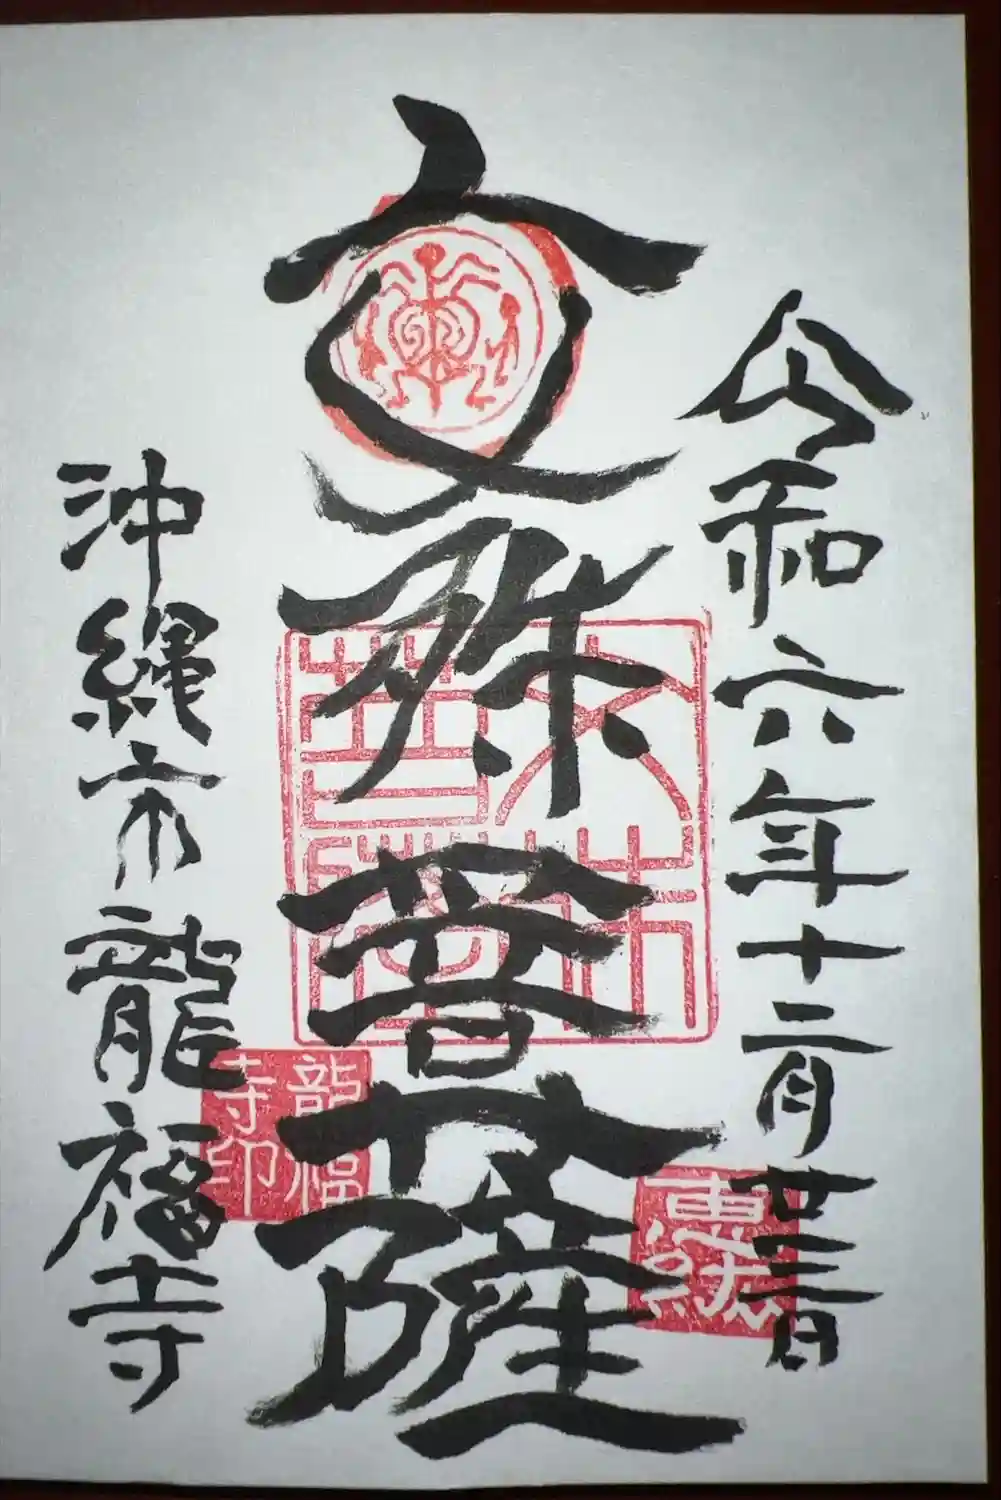 令和六年十二月廿三日
文殊菩薩
沖縄市龍福寺
文殊菩薩
龍福寺印